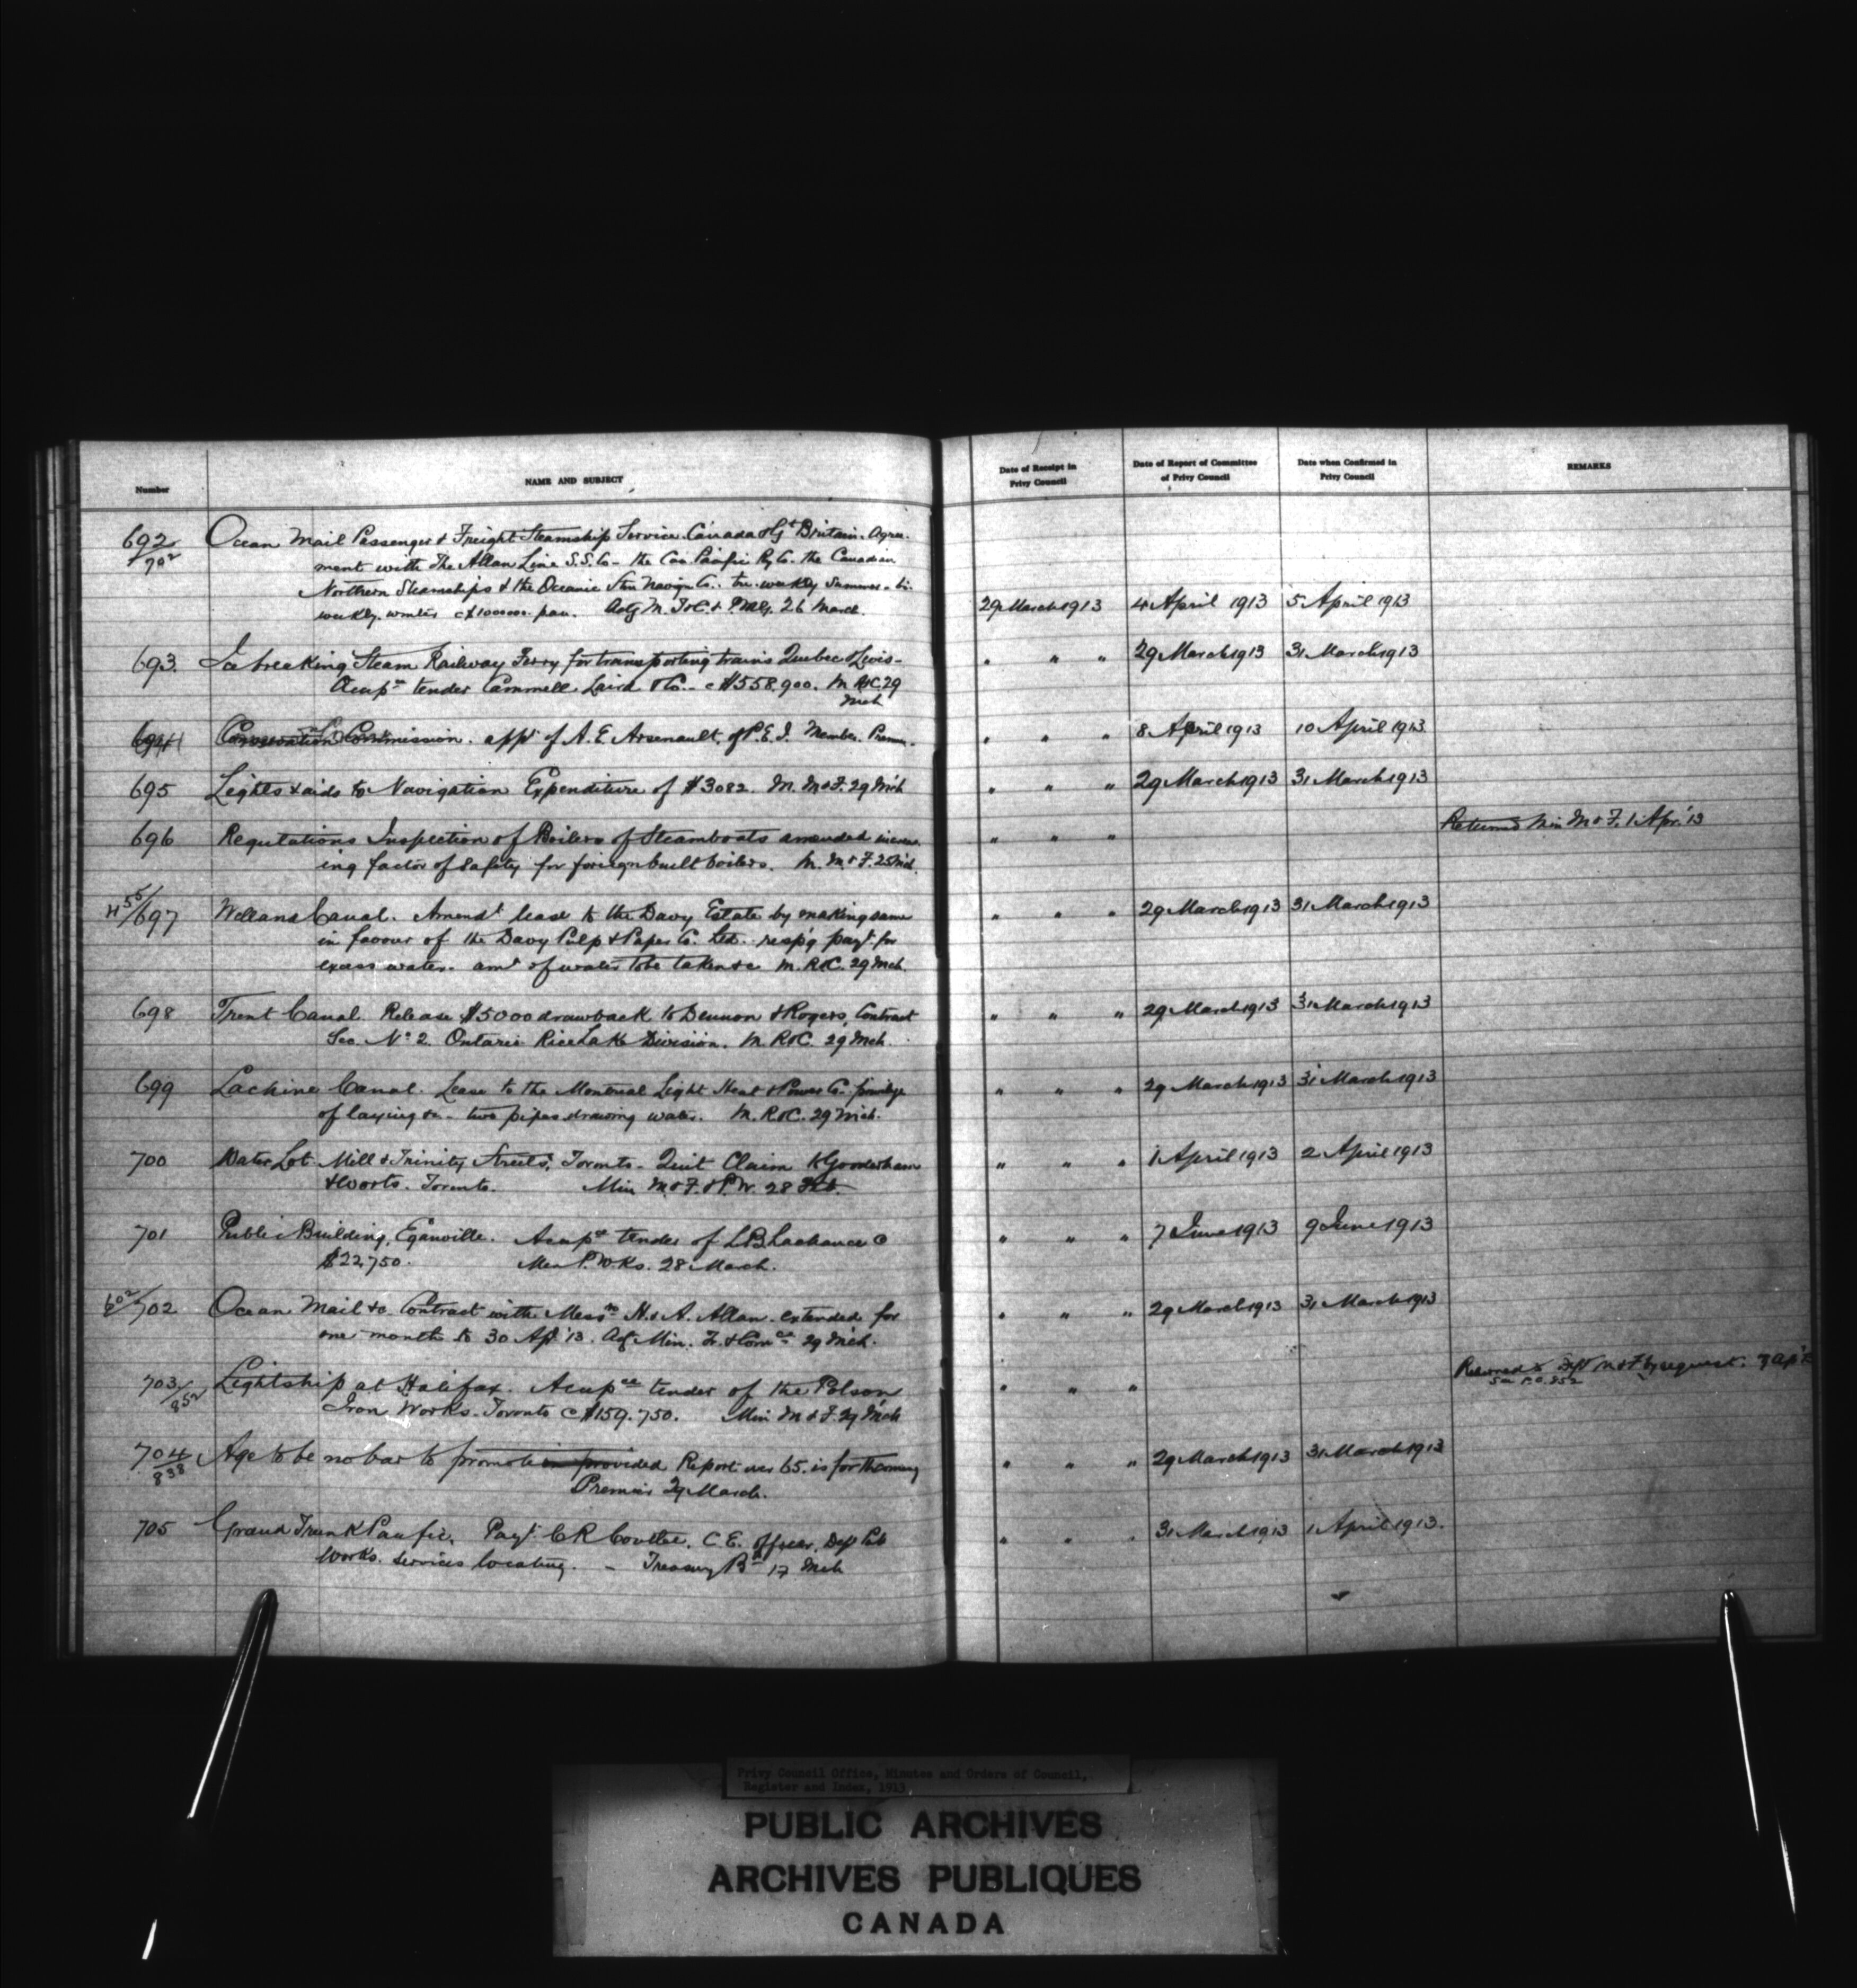 Number
NAME AND SUBJECT
Date of Receipt in
Privy Council
Date of Report of Committee
of Privy Council
Date when Confirmed in
Privy Council
REMARKS
692/702
Ocean Mail Passenger & Freight Steamship Service. Canada & Gt Britain. Agree-
ment with The Allan Line S.S. Co - the Can Pacific Ry Co. the Canadian
Northern Steamships & the Oceanic Stm Navign Co. tri-weekly summer - bi-
weekly winter @ $1000000. p an. Actg M. T & C. & PMG. 26 March.
29 March 1913 4 April 1913 5 April 1913
693. Ice breaking Steam Railway Ferry for transporting trains Quebec & Levis -
Accepce tender Cammell Laird & Co. - @ $558,900. M R&C. 29
Mch
" " " 29 March 1913 31 March 1913
694 Conservation Commission. appt of A. E. Arsenault, of P.E.I. Member. Premr.
" " " 8 April 1913 10 April 1913
695 Lights & aids to Navigation Expenditure of $3082. M. M & F. 29 Mch
" " " 29 March 1913 31 March 1913
696 Regulations Inspection of Boilers of Steamboats amended increas-
ing factor of safety for foreign built boilers. M. M & F. 25 Mch.
" " " Returned Min M & F. 1 Apr. '13
455/697 Welland Canal. Amendt lease to the Davy Estate by making same
in favour of the Davy Pulp & Paper Co. Ltd. resp'g payt for
excess water. amt of water to be taken &c M. R&C. 29 Mch.
" " " 29 March 1913 31 March 1913
698 Trent Canal. Release $5000 drawback to Dennon & Rogers, Contract
Sec. No 2. Ontario Rice Lake Division. M. R&C. 29 Mch.
" " " 29 March 1913 31 March 1913
699 Lachine Canal. Lease to the Montreal Light Heat & Power Co. privilege
of laying &c - two pipes drawing water. M. R&C. 29 Mch.
" " " 29 March 1913 31 March 1913
700 Water Lot Mill & Trinity Streets, Toronto - Quit Claim to Gooderham
& Worts. Toronto. Min M & F. & P.W. 28 Feb.
" " " 1 April 1913 2 April 1913
701 Public Building, Eganville. Accepce tender of L B Lachance @
$22,750. Min P. Wks. 28 March.
" " " 7 June 1913 9 June 1913
602/702 Ocean Mail &c Contract with Messrs H. & A. Allan. extended for
one month to 30 Apl '13. Actg Min. Tr. & Comce 29 Mch.
" " " 29 March 1913 31 March 1913
703/852 Lightship at Halifax. Accepce tender of the Polson
Iron Works. Toronto @ $159.750. Min M & F. 29 Mch
" " " Returned to Dept M & F by request. 7 Ap '13
See P.C. 852
704/838 Age to be no bar to promotion provided Report over 65. is forthcoming
Premier 29 March.
" " " 29 March 1913 31 March 1913
705 Grand Trunk Pacific. Payt C R Coutlee. C.E. officer, Dept Pub
Works. services locating. - Treasury Bd 17 Mch
" " " 31 March 1913 1 April 1913.
Privy Council Office, Minutes and Orders of Council,
Register and Index, 1913
PUBLIC ARCHIVES
ARCHIVES PUBLIQUES
CANADA